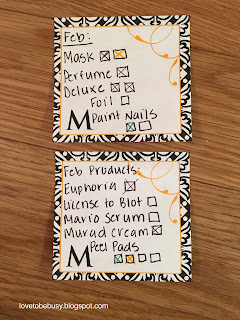 Feb:
Mask
Perfume
Deluxe
Foil
Paint Nails
M
Feb Products:
Euphoria
License to Blot
Mario Serum
Murad Cream
Peel Pads
M
lovetobebusy.blogspot.com